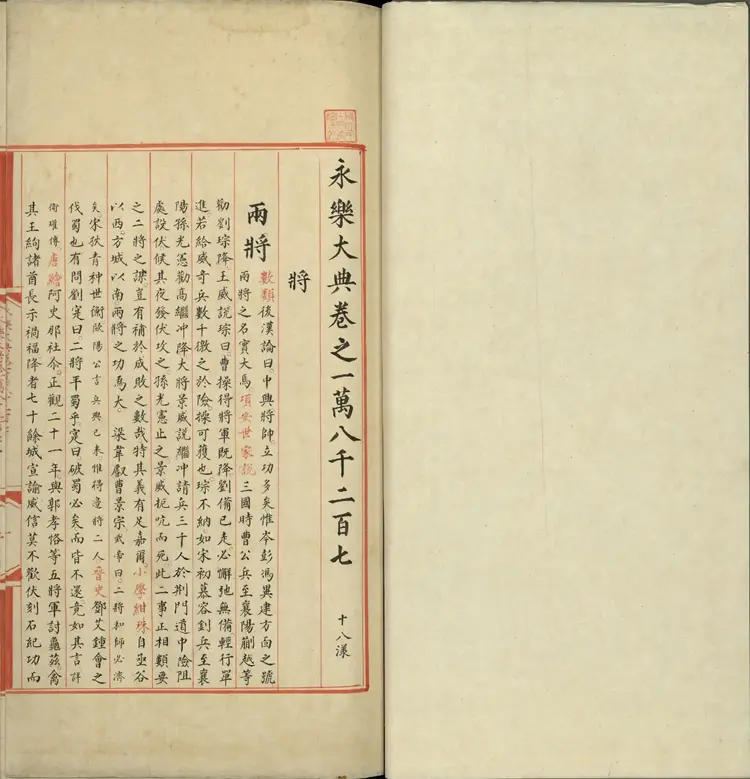 永樂大典卷之一萬八千二百七 十八漾
將
兩將
數類後漢論曰中興將帥立功多矣惟岑彭馮異建方面之號
兩將之名實大焉項安世家說三國時曹公兵至襄陽蒯越等
勸劉琮降王威說琮曰曹操得將軍既降劉備已走必懈弛無備輕行單
進若給威奇兵數千徼之於險操可獲也琮不納如宋初慕容釗兵至襄
陽孫光憲勸高繼冲降大將景威說繼冲請兵三千人於荆門道中險阻
處設伏候其夜發伏攻之孫光憲止之景威扼吭而死此二事正相類要
之二將之謀豈有補於成敗之數哉特其義有足嘉爾小學紺珠自函谷
以西方城以南兩將之功爲大 梁韋叡曹景宗武帝曰二將和師必濟
矣宋狄青种世衡歐陽公言兵興已來惟得邊將二人晉史鄧艾鍾會之
伐蜀也有問劉寔曰二將平蜀乎寔曰破蜀必矣而皆不還竟如其言詳
衛瓘傳唐繪阿史那社尒正觀二十一年與郭孝恪等五將軍討龜茲禽
其王徇諸酋長示禍福降者七十餘城宣諭威信莫不歡伏刻石紀功而